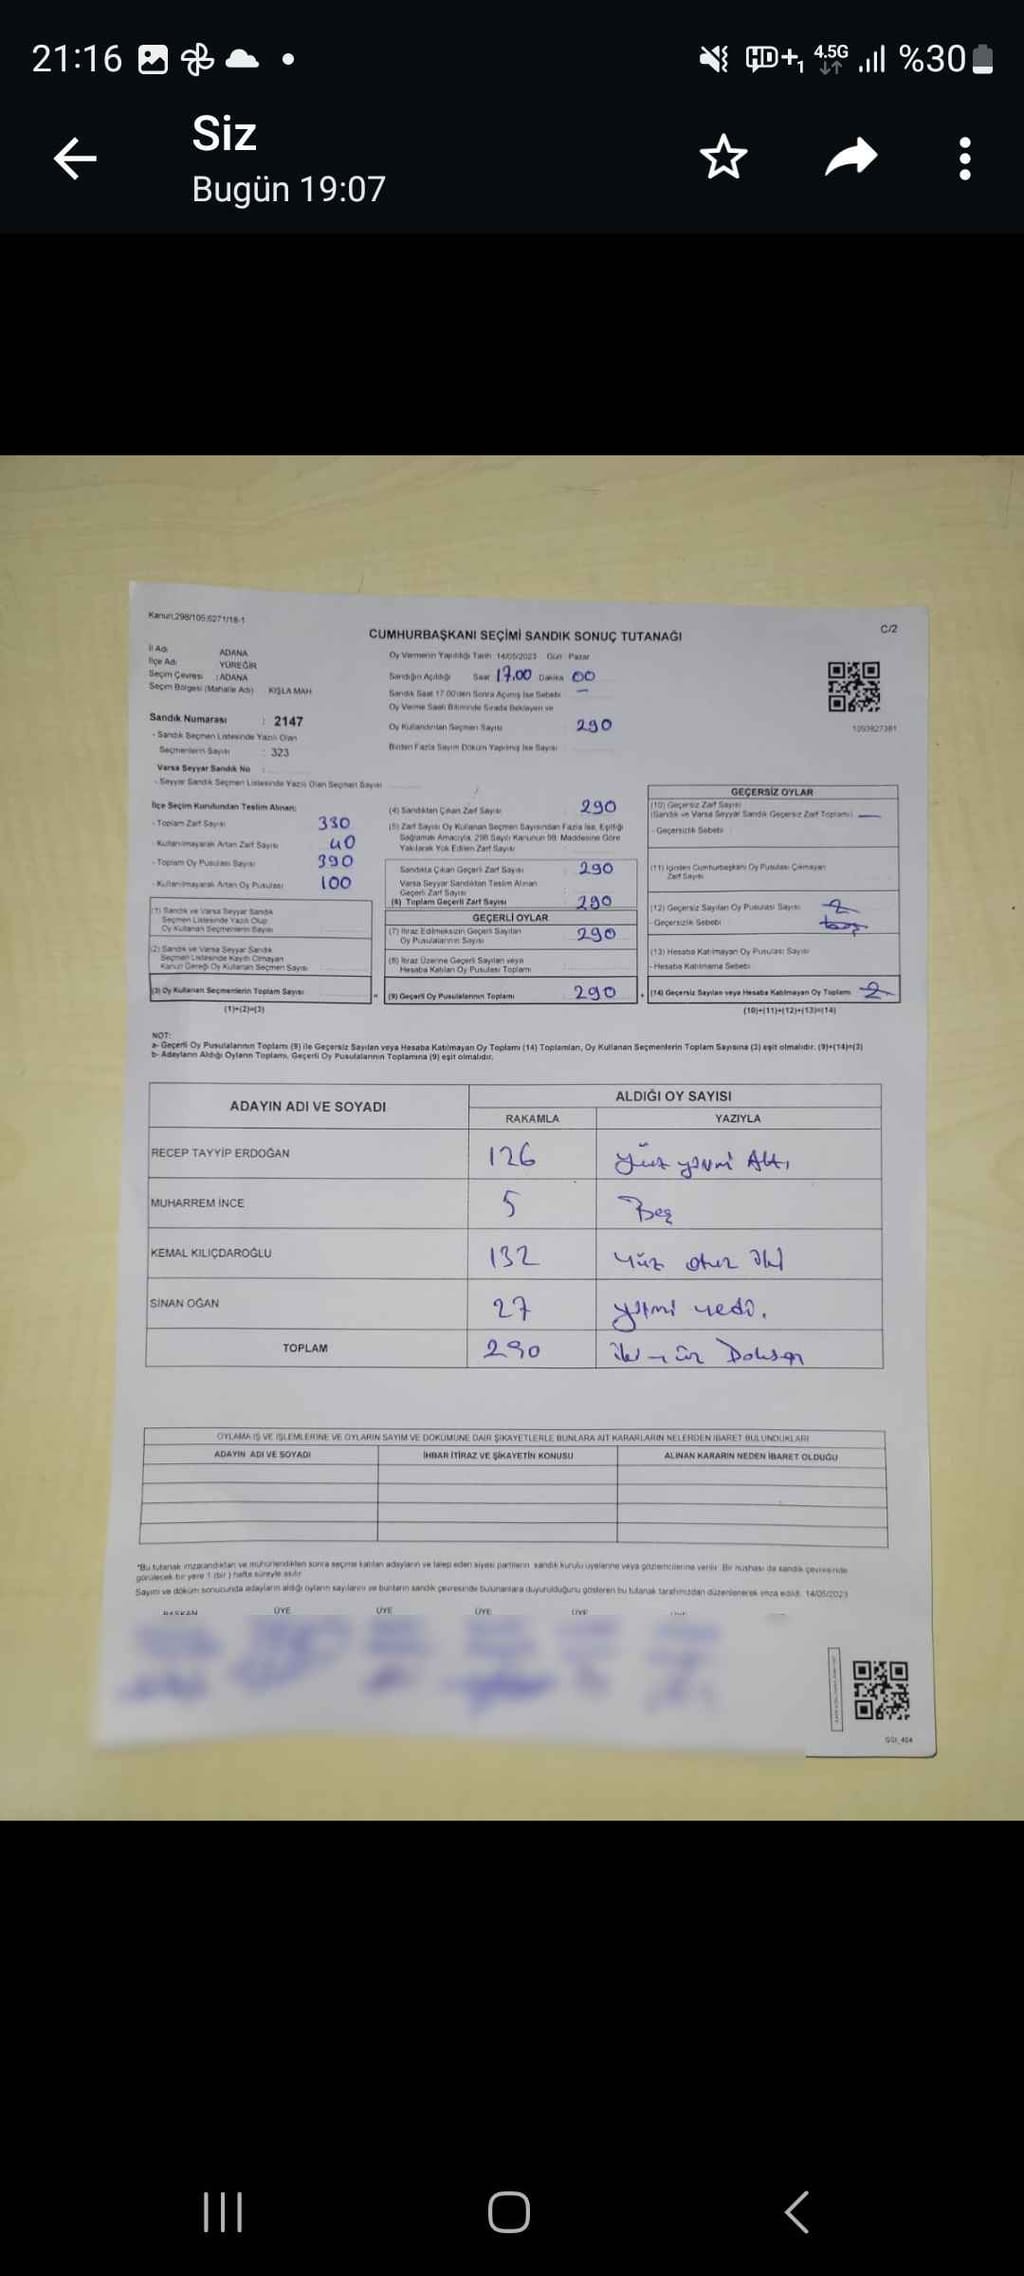 21:16 HD+1 4.5G %30
Siz
Bugün 19:07
Kanun,298/105;6271/18-1
C/2
CUMHURBAŞKANI SEÇİMİ SANDIK SONUÇ TUTANAĞI
İl Adı : ADANA
İlçe Adı : YÜREĞİR
Seçim Çevresi : ADANA
Seçim Bölgesi (Mahalle Adı) KIŞLA MAH
Sandık Numarası : 2147
- Sandık Seçmen Listesinde Yazılı Olan
Seçmenlerin Sayısı : 323
Varsa Seyyar Sandık No
- Seyyar Sandık Seçmen Listesinde Yazılı Olan Seçmen Sayısı
Oy Vermenin Yapıldığı Tarih 14/05/2023 Gün Pazar
Sandığın Açıldığı Saat 17.00 Dakika 00
Sandık Saat 17.00'den Sonra Açılmış İse Sebebi
Oy Verme Saati Bitiminde Sırada Bekleyen ve
Oy Kullandırılan Seçmen Sayısı 290
Birden Fazla Sayım Döküm Yapılmış İse Sayısı
1093827381
İlçe Seçim Kurulundan Teslim Alınan:
- Toplam Zarf Sayısı 330
- Kullanılmayarak Artan Zarf Sayısı 40
- Toplam Oy Pusulası Sayısı 390
- Kullanılmayarak Artan Oy Pusulası 100
(1) Sandık ve Varsa Seyyar Sandık
Seçmen Listesinde Yazılı Olup
Oy Kullanan Seçmenlerin Sayısı
(2) Sandık ve Varsa Seyyar Sandık
Seçmen Listesinde Kayıtlı Olmayan
Kanun Gereği Oy Kullanan Seçmen Sayısı
(3) Oy Kullanan Seçmenlerin Toplam Sayısı
(1)+(2)=(3)
(4) Sandıktan Çıkan Zarf Sayısı 290
(5) Zarf Sayısı Oy Kullanan Seçmen Sayısından Fazla İse, Eşitliği
Sağlamak Amacıyla, 298 Sayılı Kanunun 98. Maddesine Göre
Yakılarak Yok Edilen Zarf Sayısı
Sandıkta Çıkan Geçerli Zarf Sayısı 290
Varsa Seyyar Sandıktan Teslim Alınan
Geçerli Zarf Sayısı
(6) Toplam Geçerli Zarf Sayısı 290
GEÇERLİ OYLAR
(7) İtiraz Edilmeksizin Geçerli Sayılan
Oy Pusulalarının Sayısı 290
(8) İtiraz Üzerine Geçerli Sayılan veya
Hesaba Katılan Oy Pusulası Toplamı
(9) Geçerli Oy Pusulalarının Toplamı 290
GEÇERSİZ OYLAR
(10) Geçersiz Zarf Sayısı
(Sandık ve Varsa Seyyar Sandık Geçersiz Zarf Toplamı)
- Geçersizlik Sebebi
(11) İçinden Cumhurbaşkanı Oy Pusulası Çıkmayan
Zarf Sayısı
(12) Geçersiz Sayılan Oy Pusulası Sayısı 2
- Geçersizlik Sebebi
(13) Hesaba Katılmayan Oy Pusulası Sayısı
- Hesaba Katılmama Sebebi
(14) Geçersiz Sayılan veya Hesaba Katılmayan Oy Toplamı 2
(10)+(11)+(12)+(13)=(14)
NOT:
a- Geçerli Oy Pusulalarının Toplamı (9) ile Geçersiz Sayılan veya Hesaba Katılmayan Oy Toplamı (14) Toplamları, Oy Kullanan Seçmenlerin Toplam Sayısına (3) eşit olmalıdır. (9)+(14)=(3)
b- Adayların Aldığı Oyların Toplamı, Geçerli Oy Pusulalarının Toplamına (9) eşit olmalıdır.
ADAYIN ADI VE SOYADI
ALDIĞI OY SAYISI
RAKAMLA YAZIYLA
RECEP TAYYİP ERDOĞAN 126 yüz yirmi Altı
MUHARREM İNCE 5 Beş
KEMAL KILIÇDAROĞLU 132 yüz otuz iki
SİNAN OĞAN 27 yirmi yedi.
TOPLAM 290 iki yüz Doksan
OYLAMA İŞ VE İŞLEMLERİNE VE OYLARIN SAYIM VE DÖKÜMÜNE DAİR ŞİKAYETLERLE BUNLARA AİT KARARLARIN NELERDEN İBARET BULUNDUKLARI
ADAYIN ADI VE SOYADI İHBAR İTİRAZ VE ŞİKAYETİN KONUSU ALINAN KARARIN NEDEN İBARET OLDUĞU
*Bu tutanak imzalandıktan ve mühürlendikten sonra seçime katılan adayların ve talep eden siyasi partilerin sandık kurulu üyelerine veya gözlemcilerine verilir. Bir nüshası da sandık çevresinde
görülecek bir yere 1 (bir) hafta süreyle asılır.
Sayım ve döküm sonucunda adayların aldığı oyların sayılarını ve bunların sandık çevresinde bulunanlara duyurulduğunu gösteren bu tutanak tarafımızdan düzenlenerek imza edildi. 14/05/2023
BAŞKAN ÜYE ÜYE ÜYE ÜYE